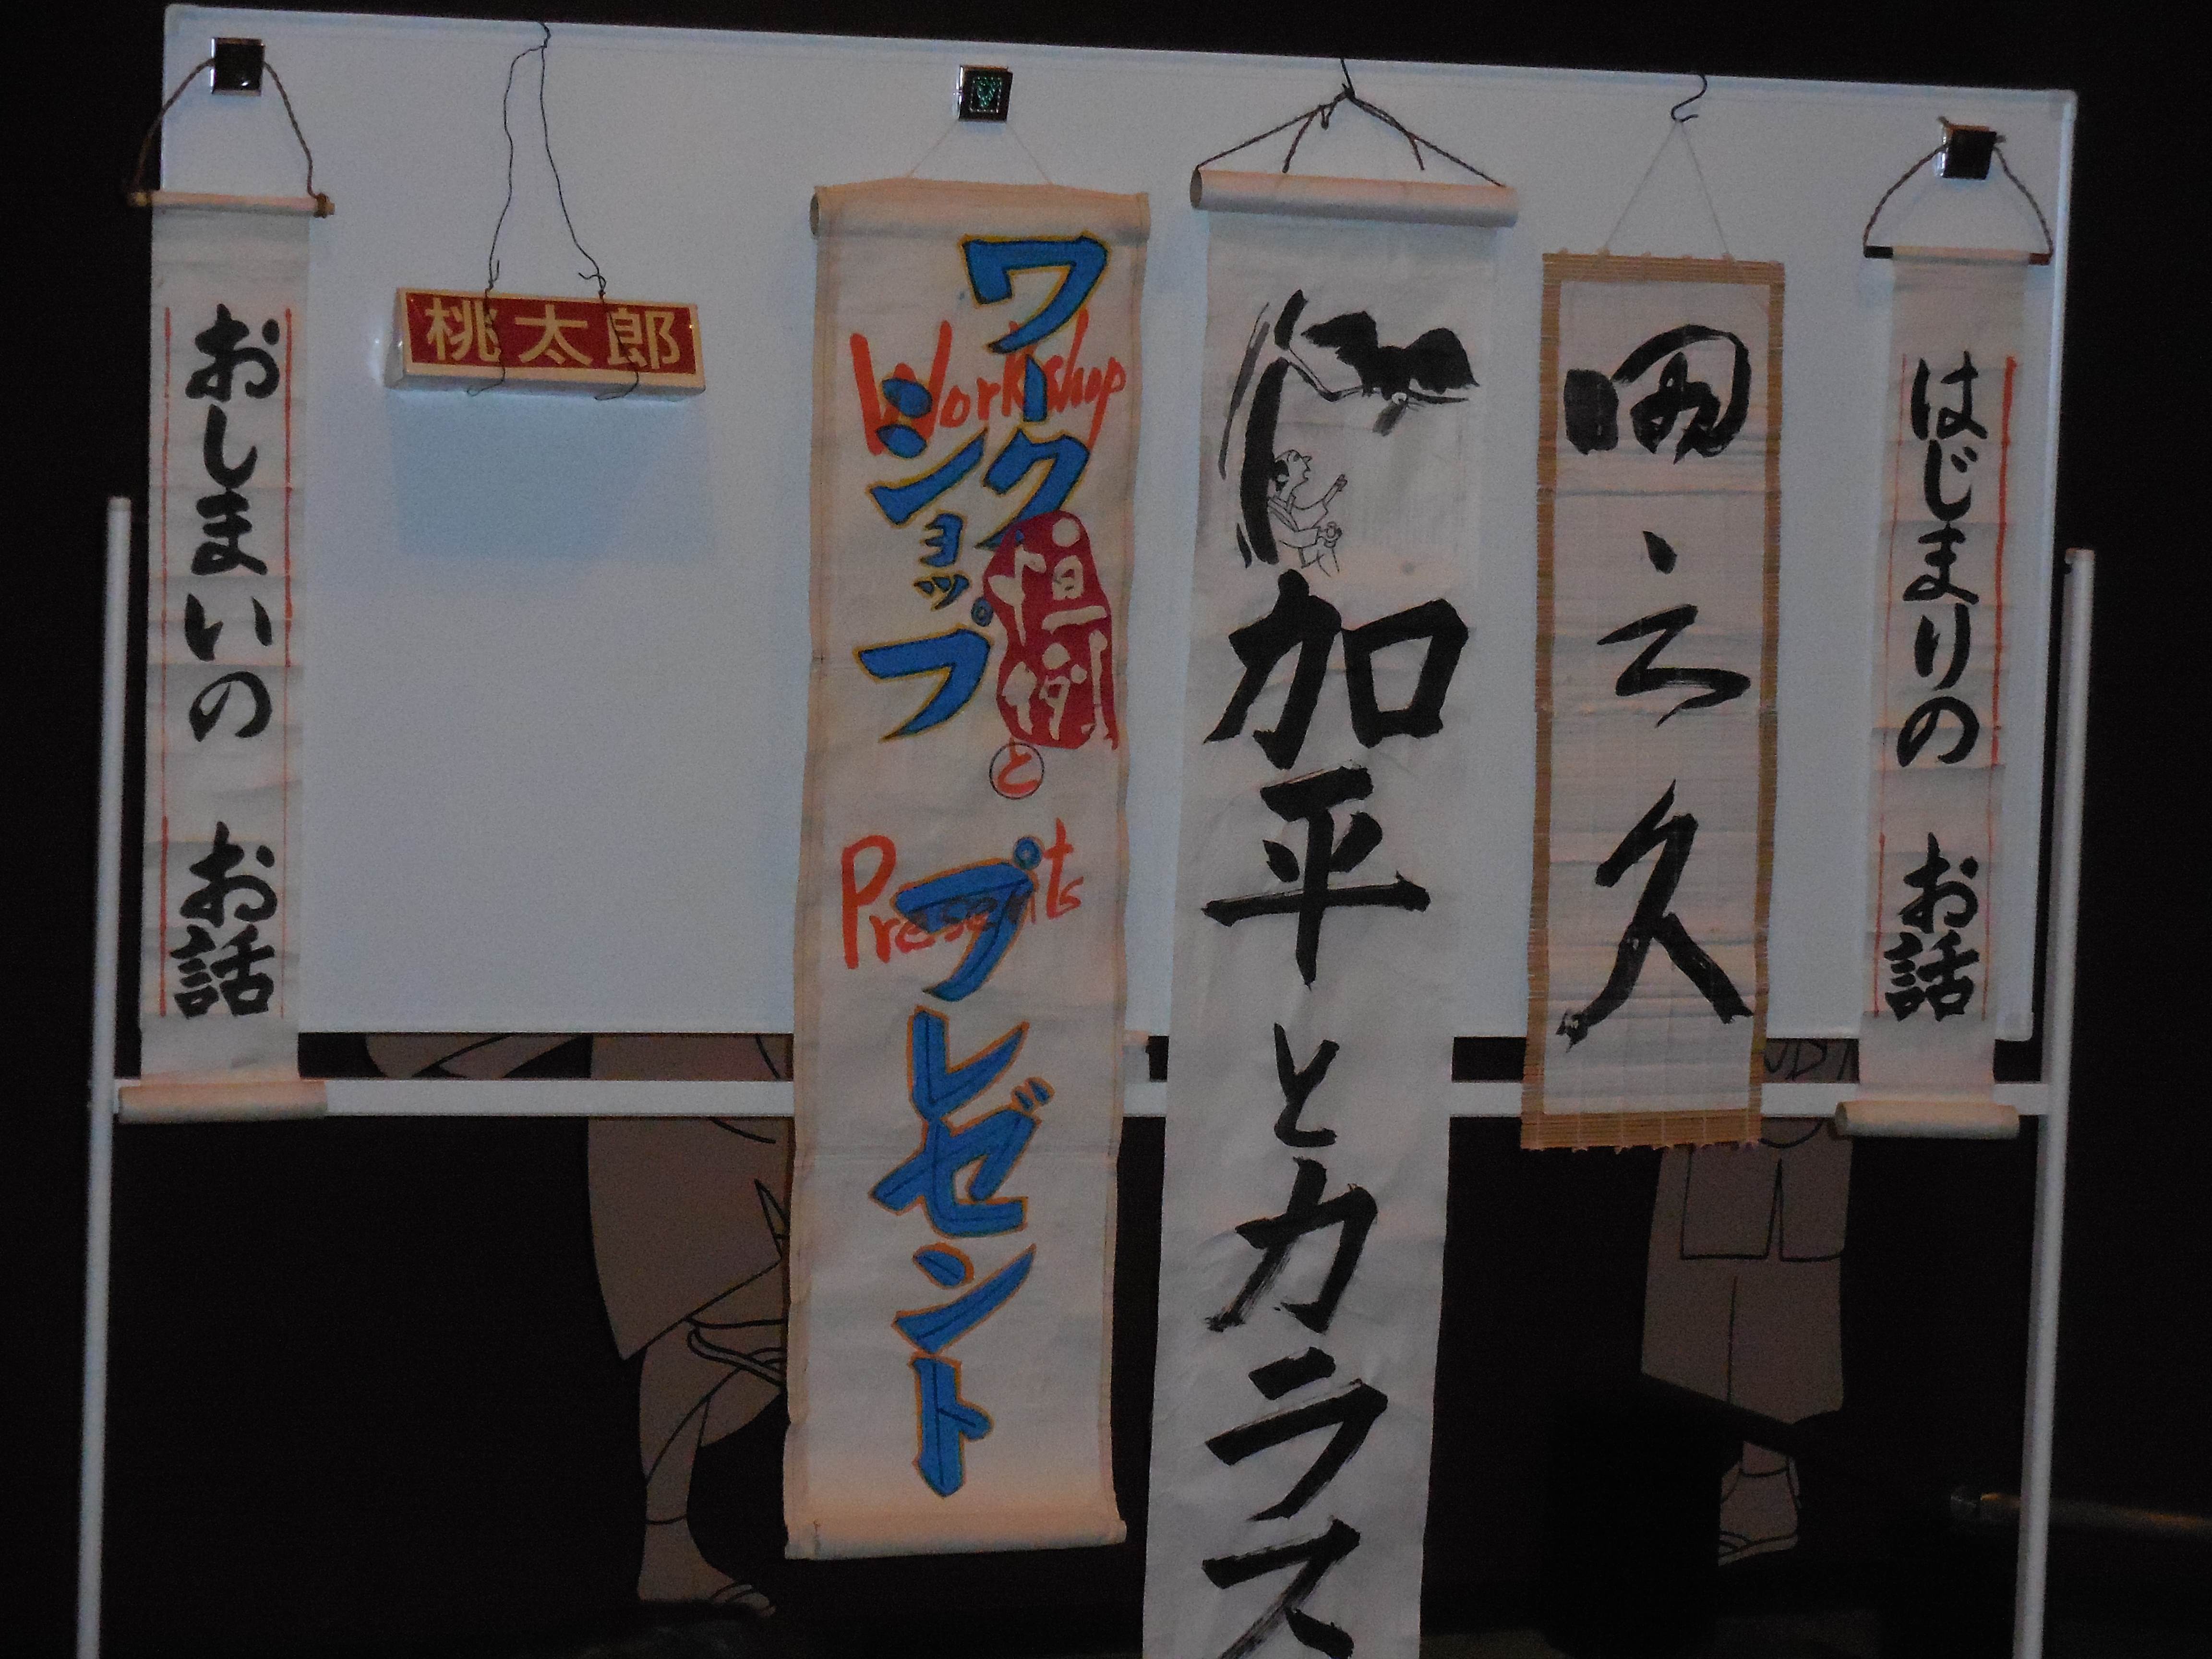 はじまりの お話
田之久
加平とカラス
ワーク
ショップ
Workshop
と
プレゼント
Presents
桃太郎
おしまいの お話